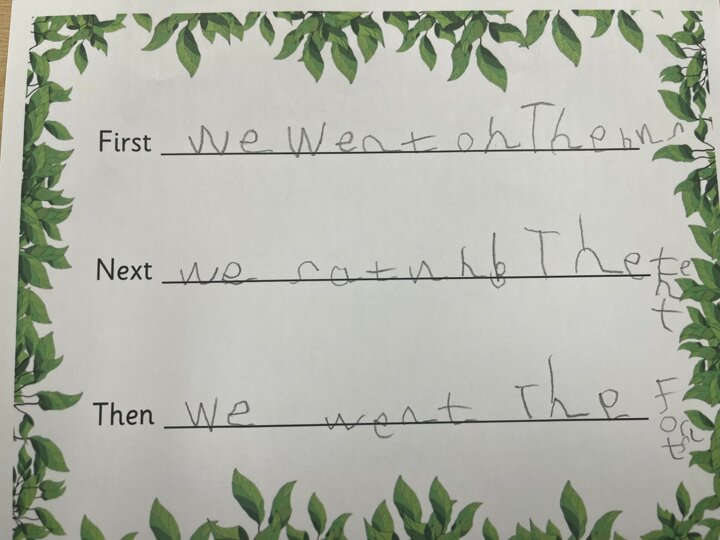 First We Went on The bus
Next we sat unb The tent
Then We went The